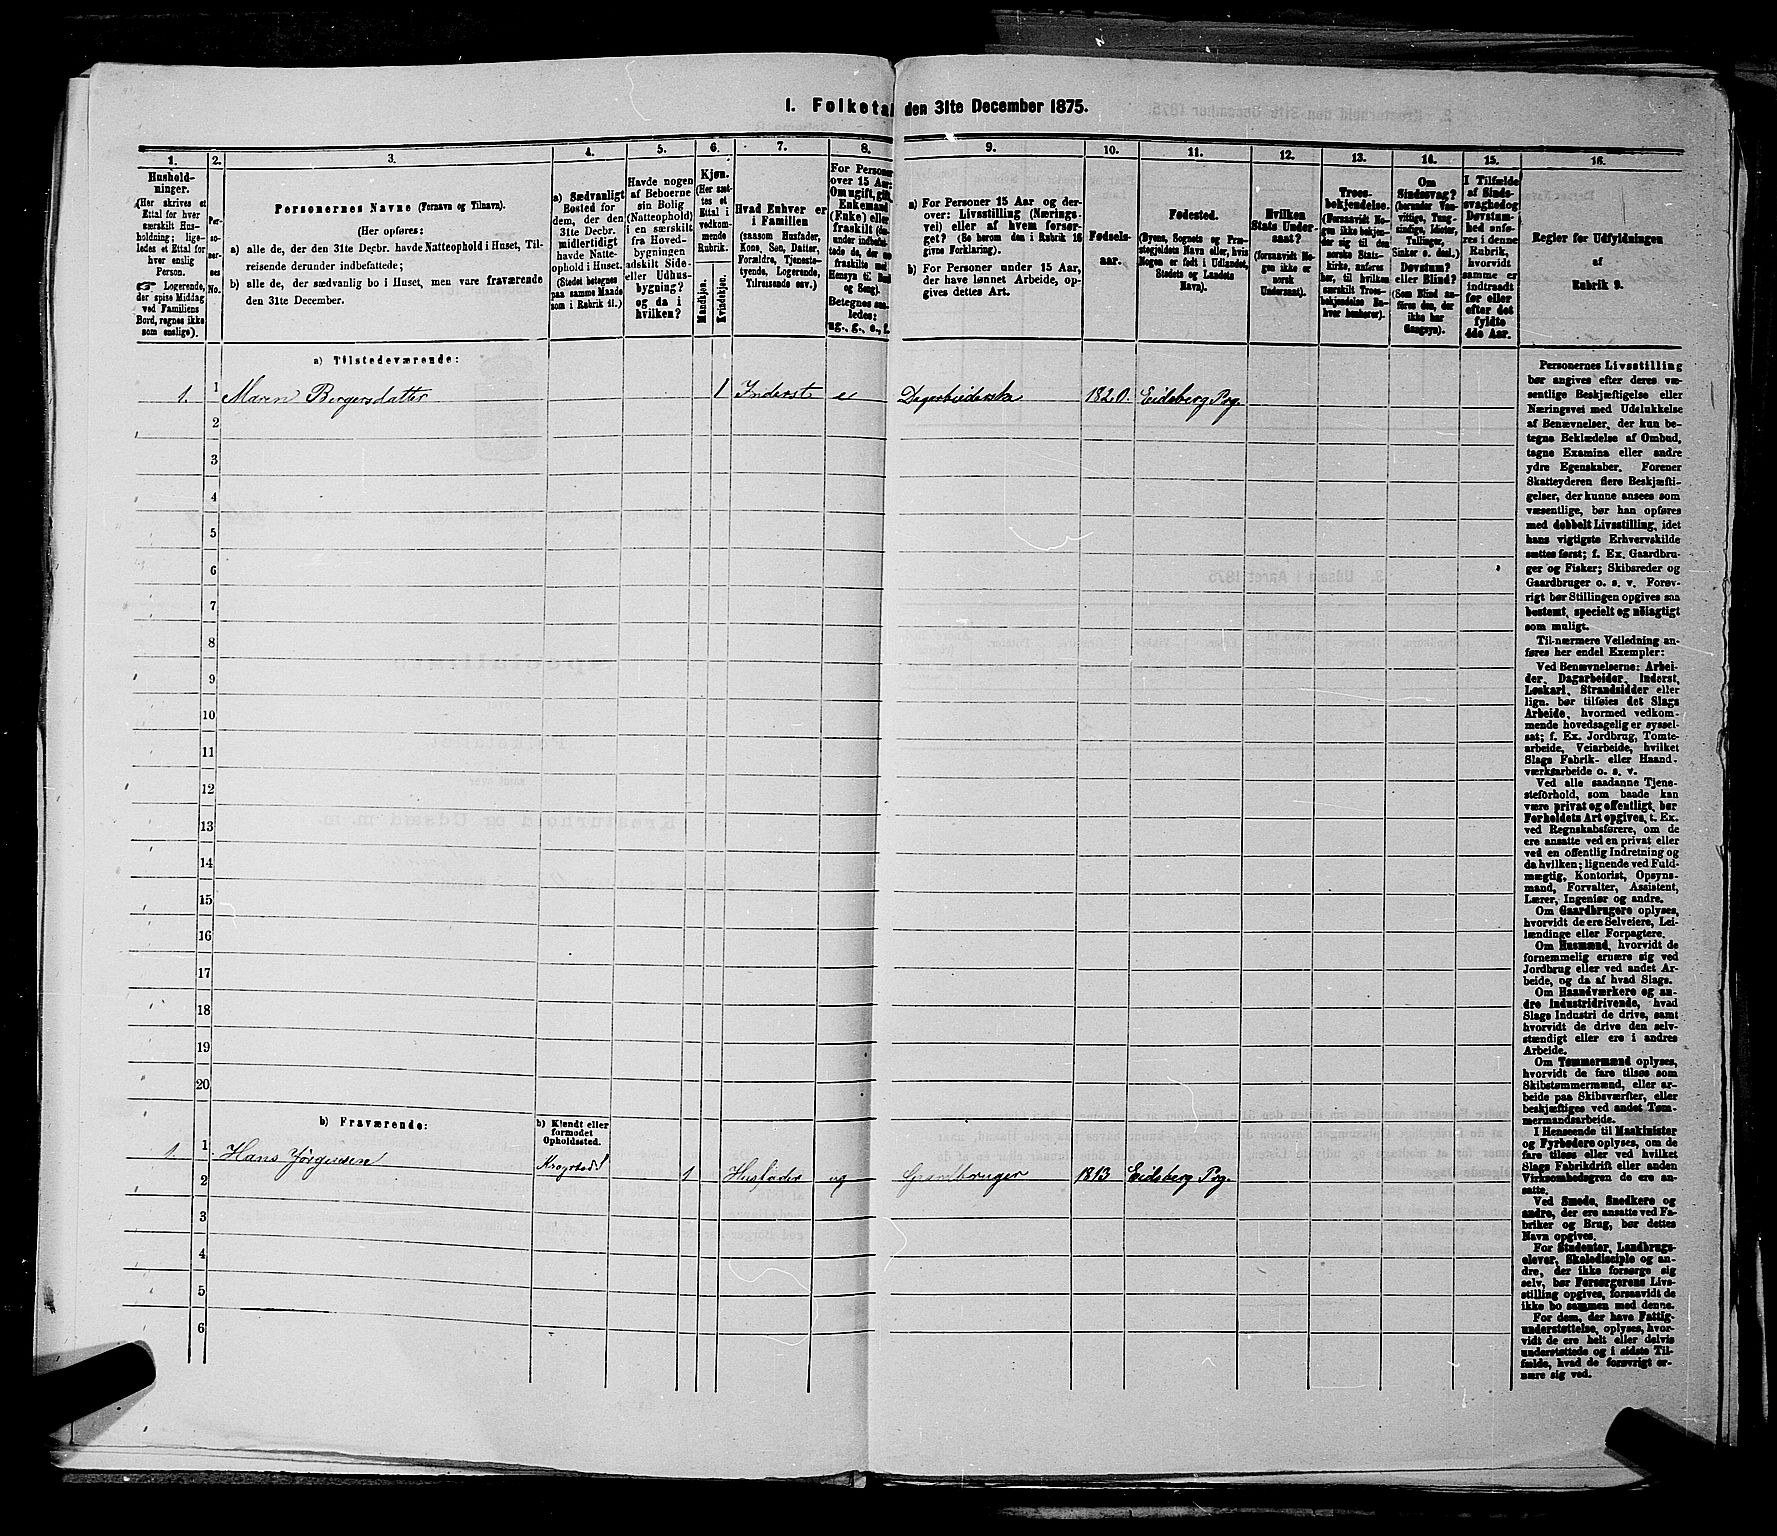 1. Folketal den 31te December 1875.
1. 2. 3. 4. 5. 6. 7. 8. 9. 10. 11. 12. 13. 14. 15. 16.
Hushold-
ninger.
(Her skrives et
Ettal for hver
særskilt Hus-
holdning; lige-
ledes et Ettal for
hver enslig
Person.
Logerende,
der spise Middag
ved Familiens
Bord, regnes ikke
som enslige).
Per-
so-
ner-
nes
No.
Personernes Navne (Fornavn og Tilnavn).
(Her opføres:
a) alle de, der den 31te Decbr. havde Natteophold i Huset, Til-
reisende derunder indbefattede;
b) alle de, der sædvanlig bo i Huset, men vare fraværende
den 31te December.
a) Sædvanligt
Bosted for
dem, der den
31te Decbr.
midlertidigt
havde Natte-
ophold i Huset.
(Stedet betegnes
paa samme Maade
som i Rubrik 11.)
Havde nogen
af Beboerne
sin Bolig
(Natteophold)
i en særskilt
fra Hoved-
bygningen
adskilt Side-
eller Udhus-
bygning?
og da i
hvilken?
Kjøn.
(Her sæt-
tes et
Ettal i
vedkom-
mende
Rubrik.
Mandkjøn.
Kvindekjøn.
Hvad Enhver er
i Familien
(saasom Husfader,
Kone, Søn, Datter,
Forældre, Tjeneste-
tyende, Logerende,
Tilreisende osv.)
For Personer
over 15 Aar:
Omugift, gift,
Enkemand
(Enke) eller
fraskilt
Betegnes saa-
ledes:
ug., g., e., f.
a) For Personer 15 Aar og der-
over: Livsstilling (Nærings-
vei) eller af hvem forsør-
get? (Se herom den i Rubrik 16
givne Forklaring).
b) For Personer under 15 Aar,
der have lønnet Arbeide, op-
gives dettes Art.
Fødsels-
aar.
Fødested.
(Byens, Sognets og Præ-
stegjeldets Navn eller, hvis
Nogen er født i Udlandet,
Stedets og Landets
Navn).
Hvilken
Stats Under-
saat?
(forsaavidt No-
gen ikke er
norsk
Undersaat).
Troes-
bekjendelse.
(Forsaavidt No-
gen ikke bekjen-
der sig til den
norske Stats-
kirke, anføres
her, til hvilken
særskilt Troes-
bekjendelse En-
hver henhører).
Om
Sindssvag?
(herunder Van-
vittige, Tung-
sindige, Idioter,
Tullinger,
Sinker o. desl.)
Døvstum?
eller Blind?
(Som Blind an-
føres den, der
ikke har
Gangsyn).
I Tilfælde
af Sinds-
svaghed og
Døvstum-
hed anfø-
res i denne
Rubrik,
hvorvidt
samme er
indtraadt
før eller
efter det
fyldte
4de Aar.
Regler for Udfyldningen
af
Rubrik 9.
a) Tilstedeværende:
1. 1 Maren Bergersdatter 1 Inderst e Dagarbeiderske 1820. Eidsberg Prg.
2
3
4
5
6
7
8
9
10
11
12
13
14
15
16
17
18
19
20
b) Fraværende:
b) Kjendt eller
formodet
Opholdssted.
1. 1 Hans Jørgensen Krogstad 1 Husfader ug Gaardbruger 1813 Eidsberg Prg.
2
3
4
5
6
Personernes Livsstilling
bør angives efter deres væ-
sentlige Beskjæftigelse eller
Næringsvei med Udelukkelse
af Benævnelser, der kun be-
tegne Beklædelse af Ombud,
tagne Examina eller andre
ydre Egenskaber. Forener
Skatteyderen flere Beskjæfti-
gelser, der kunne ansees som
væsentlige, bør han opføres
med dobbelt Livsstilling, idet
hans vigtigste Erhvervskilde
sættes først; f. Ex. Gaardbru-
ger og Fisker; Skibsreder og
Gaardbruger o. s. v. Forøv-
rigt bør Stillingen opgives saa
bestemt, specielt og nøiagtigt
som muligt.
Til nærmere Veiledning an-
føres her endel Exempler:
Ved Benævnelserne: Arbei-
der, Dagarbeider, Inderst,
Løskarl, Strandsidder eller
lign. bør tilføies det Slags
Arbeide, hvormed vedkom-
mende hovedsagelig er syssel-
sat; f. Ex. Jordbrug, Tomte-
arbeide, Veiarbeide, hvilket
Slags Fabrik- eller Haand-
værksarbeide o. s. v.
Ved alle saadanne Tjene-
steforhold, som baade kan
være privat og offentligt, bør
Forholdets Art opgives, t. Ex.
ved Regnskabsførere, om de
ere ansatte ved en privat eller
ved en offentlig Indretning og
da hvilken; lignende ved Fuld-
mægtig, Kontorist, Opsyns-
mand, Forvalter, Assistent,
Lærer, Ingeniør og andre.
Om Gaardbrugere oplyses,
hvorvidt de ere Selveiere, Lei-
lændinge eller Forpagtere.
Om Husmænd, hvorvidt de
fornemmelig ernære sig ved
Jordbrug eller ved andet Ar-
beide, og da af hvad Slags.
Om Haandværkere og an-
dre Industridrivende, hvad
Slags Industri de drive, samt
hvorvidt de drive den selv-
stændigt eller ere i andres
Arbeide.
Om Tømmermænd oplyses,
hvorvidt de fare tilsøs som
Skibstømmermænd, eller ar-
beide paa Skibsværfter, eller
beskjæftiges ved andet Tøm-
mermandsarbeide.
I Henseende til Maskinister
og Fyrbødere oplyses, om de
fare tilsøs eller ved hvilket
Slags Fabrikdrift eller anden
Virksomhedsgren de ere an-
satte.
Ved Smede, Snedkere og
andre, der ere ansatte ved Fa-
briker og Brug, bør dettes
Navn opgives.
For Studenter, Landbrugs-
elever, Skoledisciple og an-
dre, der ikke forsørge sig
selv, bør Forsørgerens Livs-
stilling opgives, forsaavidt de
ikke bo sammen med denne.
For dem, der have Fattig-
understøttelse, oplyses, hvor-
vidt de ere helt eller delvis
understøttede og i sidste Til-
fælde, hvad de forøvrigt er-
nære sig ved.